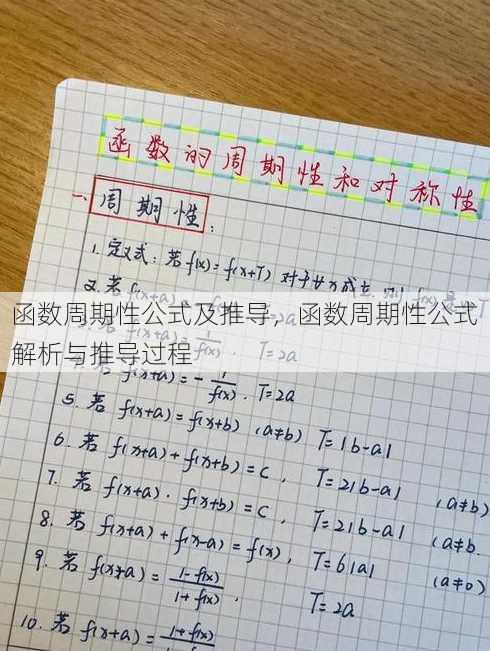 函数的周期性和对称性
一、周期性:
1. 定义式: 若f(x)=f(x+T) 对于∀x成立, 则
2. 若
函数周期性公式及推导，函数周期性公式
解析与推导过程
T=2a
f(x+a)=-1/f(x). T=2a
5. 若 f(x+a)=f(x+b) (a≠b) T=|b-a|
6. 若 f(x+a)+f(x+b)=c, T=2|b-a| (a≠b)
7. 若 f(x+a)·f(x+b)=c, T=2|b-a| (a≠b.
8. 若 f(x+a)+f(x-a)=f(x), T=6|a| (a≠0)
9. 若 f(x+a)=1-f(x)/1+f(x). T=2a
10. 若 f(x+a)=1+f(x)